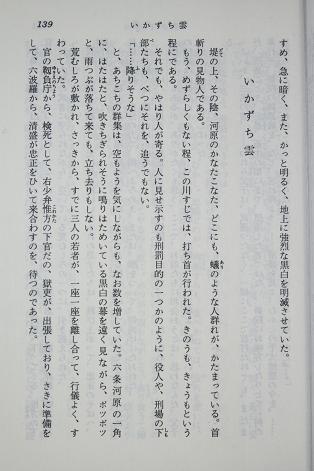 139 いかずち雲
すめ、急に暗く、また、かっと明るく、地上に強烈な黒白を明滅させていた。
いかずち雲
堤の上、その陰、河原のかなたこなた、どこにも、蟻のような人群れが、かたまっている。首
斬りの見物人である。
もう、めずらしくもない程、この川すじでは、打ち首が行われた。きのうも、きょうもという
程にである。
それでも、やはり人が寄る。人に見せ示すのも刑罰目的の一つかのように、役人や、刑場の下
部たちも、べつにそれを、追うでもない。
「……降りそうな」
と、あちこちの群集は、空もようを気にしながらも、なお数を増していた。六条河原の一角
に、はたはたと、吹きちぎれそうに鳴りはためいている黒白の幕を遠く見ながら、ポツポツ
と、雨つぶが落ちて来ても、立ち去りもしない。
荒むしろが敷かれ、さっきから、すでに三人の若者が、一座一座を離し合って、行儀よく、す
わっていた。
官の靱負庁から、検死として、右少弁惟方の下官だの、獄吏が、出張しており、さきに準備を
して、六波羅から、清盛が忠正をひいて来合わすのを、待つのであった。